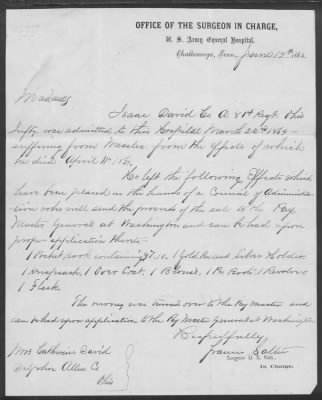 OFFICE OF THE SURGEON IN CHARGE,
U. S. Army General Hospital,
Chattanooga, Tenn., June 17th 186
Madam
Isaac David Co A. 81st Regt. Ohio
Infty was admitted to this Hospital March 22nd 1864
suffering from Measles from the effects of which
he died April 1st
He left the following Effects which
have been placed in the hands of a Council of Administra
tion who will send the proceeds of the sale to the Pay
Master General at Washington and can be had upon
proper application thereto
1 Pocket book containing $7.10, 1 Gold Pen and Silver Holder
1 Knapsack, 1 Over Coat, 1 Blouse, 1 Pr Boots, 1 Revolver
1 Flask.
The money was turned over to the Pay Master and
can be had upon application to the Pay Master General at Washington
Respectfully,
Francis Salter
Surgeon U. S. Vols.,
In Charge.
Mrs Catherine David
Delphos Allen Co
Ohio